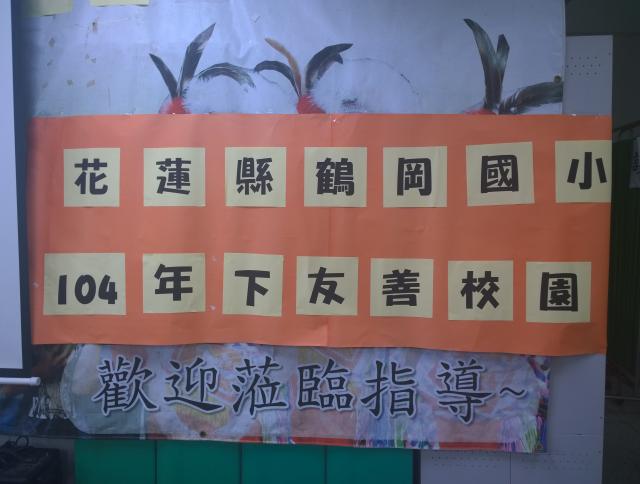 花蓮縣鶴岡國小
104年下友善校園
歡迎蒞臨指導~